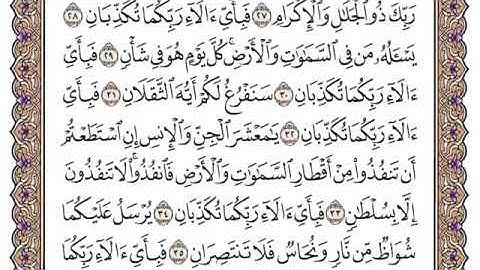 رَبِّكَ ذُو ٱلْجَلَٰلِ وَٱلْإِكْرَامِ ٢٧ فَبِأَىِّ ءَالَآءِ رَبِّكُمَا تُكَذِّبَانِ ٢٨
يَسْـَٔلُهُۥ مَن فِى ٱلسَّمَٰوَٰتِ وَٱلْأَرْضِ ۚ كُلَّ يَوْمٍ هُوَ فِى شَأْنٍ ٢٩ فَبِأَىِّ
ءَالَآءِ رَبِّكُمَا تُكَذِّبَانِ ٣٠ سَنَفْرُغُ لَكُمْ أَيُّهَ ٱلثَّقَلَانِ ٣١ فَبِأَىِّ
ءَالَآءِ رَبِّكُمَا تُكَذِّبَانِ ٣٢ يَٰمَعْشَرَ ٱلْجِنِّ وَٱلْإِنسِ إِنِ ٱسْتَطَعْتُمْ
أَن تَنفُذُوا۟ مِنْ أَقْطَارِ ٱلسَّمَٰوَٰتِ وَٱلْأَرْضِ فَٱنفُذُوا۟ ۚ لَا تَنفُذُونَ
إِلَّا بِسُلْطَٰنٍ ٣٣ فَبِأَىِّ ءَالَآءِ رَبِّكُمَا تُكَذِّبَانِ ٣٤ يُرْسَلُ عَلَيْكُمَا
شُوَاظٌ مِّن نَّارٍ وَنُحَاسٌ فَلَا تَنتَصِرَانِ ٣٥ فَبِأَىِّ ءَالَآءِ رَبِّكُمَا